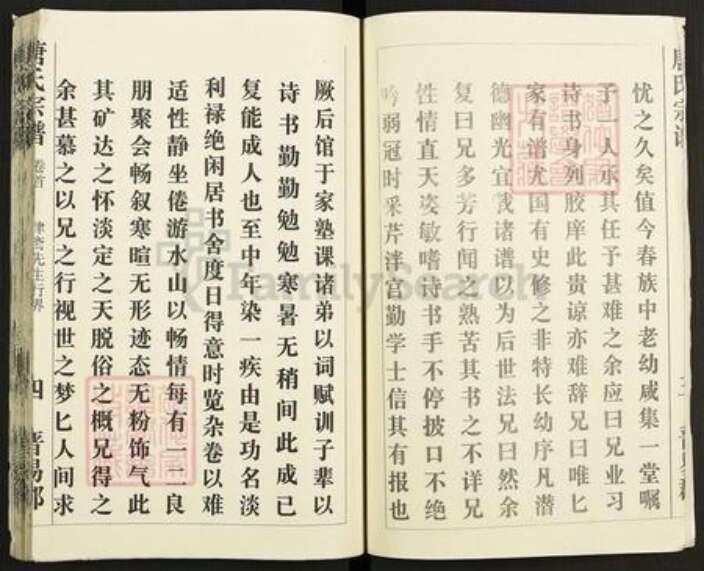 忧之久矣值今春族中老幼咸集一堂嘱
予一人承其任予甚难之余应曰兄业习
诗书身列胶庠此贵谅亦难辞兄曰唯匕
家有谱尤国有史修之非特长幼序凡潜
德幽光宜我诸谱以为后世法兄曰然余
复曰兄多芳行闻之熟苦其书之不详兄
性情直天姿敏嗜诗书手不停披口不绝
吟弱冠时采芹泮宫勤学士信其有报也
厥后馆于家塾课诸弟以词赋训子辈以
诗书勤勤勉勉寒暑无稍间此成已
复能成人也至中年染一疾由是功名淡
利禄绝闲居书舍度日得意时览杂卷以难
适性静坐倦游水山以畅情每有一二良
朋聚会畅叙寒暄无形迹态无粉饰气此
其矿达之怀淡定之天脱俗之概兄得之
余甚慕之以兄之行视世之梦匕人间求
唐氏宗谱
卷首
四
晋昌郡
唐氏宗谱
FamilySearch